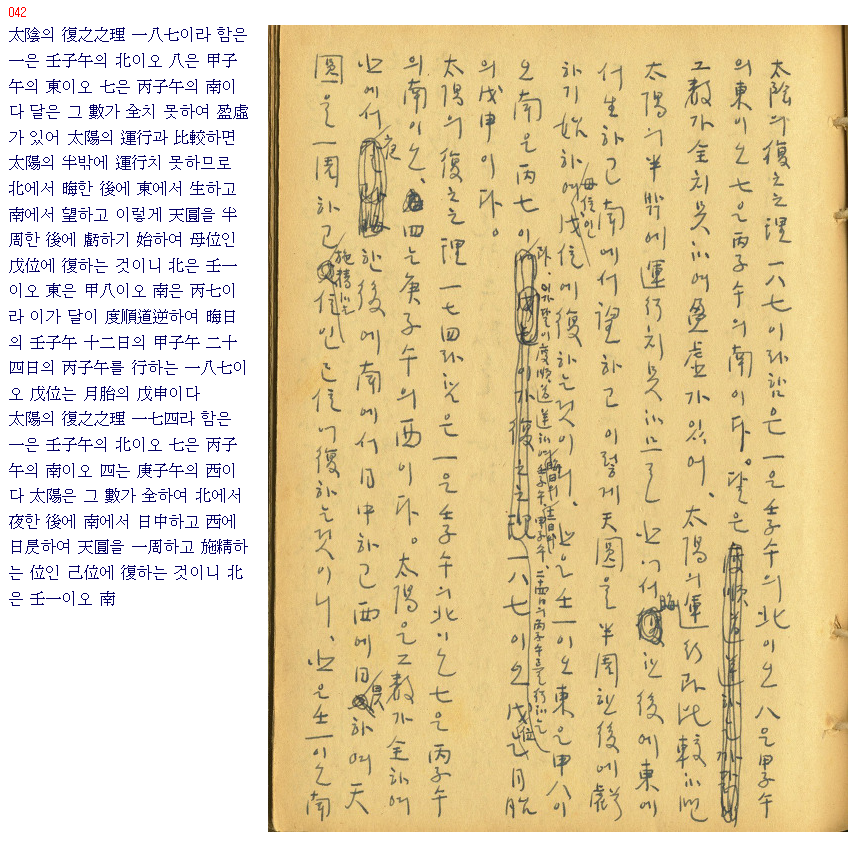 042
太陰의 復之之理 一八七이라 함은
一은 壬子午의 北이오 八은 甲子
午의 東이오 七은 丙子午의 南이
다 달은 그 數가 全치 못하여 盈虛
가 있어 太陽의 運行과 比較하면
太陽의 半밖에 運行치 못하므로
北에서 晦한 後에 東에서 生하고
南에서 望하고 이렇게 天圓을 半
周한 後에 虧하기 始하여 母位인
戊位에 復하는 것이니 北은 壬一
이오 東은 甲八이오 南은 丙七이
라 이가 달이 度順道逆하여 晦日
의 壬子午 十二日의 甲子午 二十
四日의 丙子午를 行하는 一八七이
오 戊位는 月胎의 戊申이다
太陽의 復之之理 一七四라 함은
一은 壬子午의 北이오 七은 丙子
午의 南이오 四는 庚子午의 西이
다 太陽은 그 數가 全하여 北에서
夜한 後에 南에서 日中하고 西에
日昃하여 天圓을 一周하고 施精하
는 位인 己位에 復하는 것이니 北
은 壬一이오 南
太陰의 復之之理 一八七이라 함은 一은 壬子午의 北이오 八은 甲子午
의 東이오 七은 丙子午의 南이다. 달은
그 數가 全치 못하여 盈虛가 있어, 太陽의 運行과 比較하면
太陽의 半밖에 運行치 못하므로 北에서 晦한 後에 東에
서 生하고 南에서 望하고 이렇게 天圓을 半周한 後에 虧
하기 始하여 母位인 戊位에 復하는 것이니, 北은 壬一이오 東은 甲八이
오 南은 丙七이라. 이가 달이 度順道逆하여 晦日의 壬子午, 十二日의 甲子午, 二十四日의 丙子午를 行하는 一八七이오 戊位는 月胎
의 戊申이다.
太陽의 復之之理 一七四라 함은 一은 壬子午의 北이오 七은 丙子午
의 南이오, 四는 庚子午의 西이다. 太陽은 그 數가 全하여
北에서 夜한 後에 南에서 日中하고 西에 日昃하여 天
圓을 一周하고 施精하는 位인 己位에 復하는 것이니, 北은 壬一이오 南